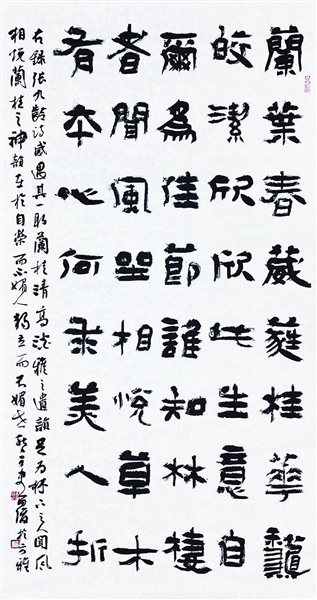 蘭葉春葳蕤桂華龝
皎潔欣欣此生意自
爾為佳節誰知林棲
者聞風坐相悅草木
有本心何求美人折
右錄張九齡詩感遇其一取蘭桂清高淡雅之遺韻是為林下之人聞風
相悅蘭桂之神韻在於自榮而不媚人獨立而不媚世